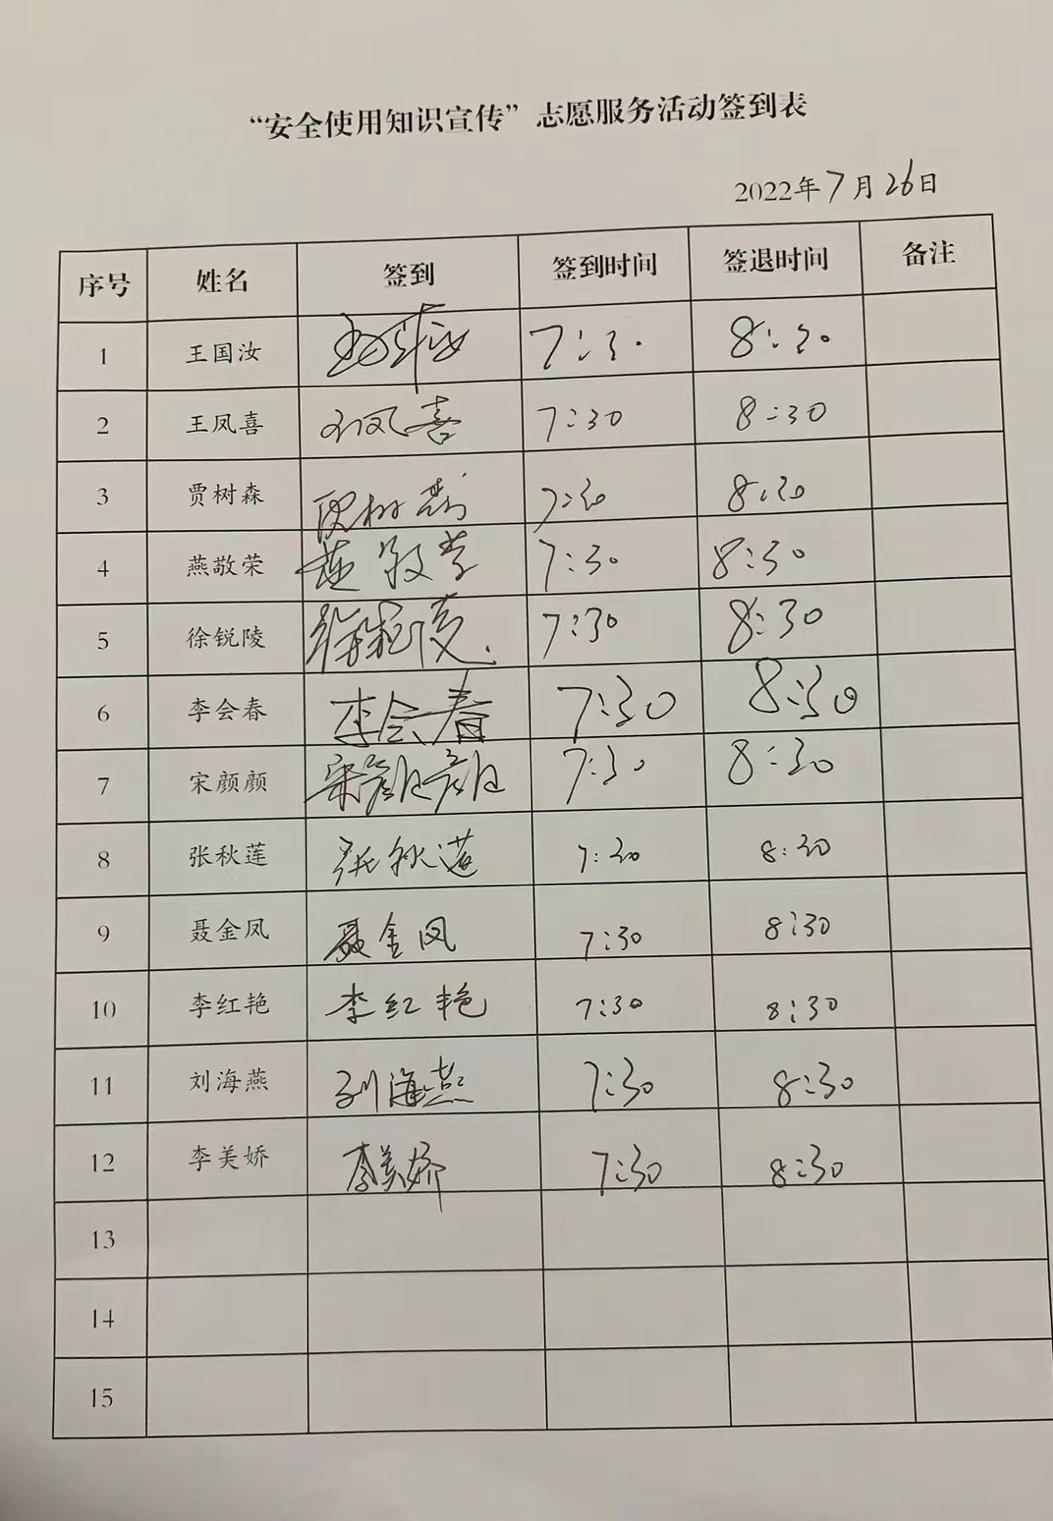 “安全使用知识宣传”志愿服务活动签到表
2022年7月26日
序号 姓名 签到 签到时间 签退时间 备注
1 王国汝 7:30 8:30
2 王凤喜 王凤喜 7:30 8:30
3 贾树森 贾树森 7:30 8:30
4 燕敬荣 燕敬荣 7:30 8:30
5 徐锐陵 徐锐陵 7:30 8:30
6 李会春 李会春 7:30 8:30
7 宋颜颜 宋颜颜 7:30 8:30
8 张秋莲 张秋莲 7:30 8:30
9 聂金凤 聂金凤 7:30 8:30
10 李红艳 李红艳 7:30 8:30
11 刘海燕 刘海燕 7:30 8:30
12 李美娇 李美娇 7:30 8:30
13
14
15